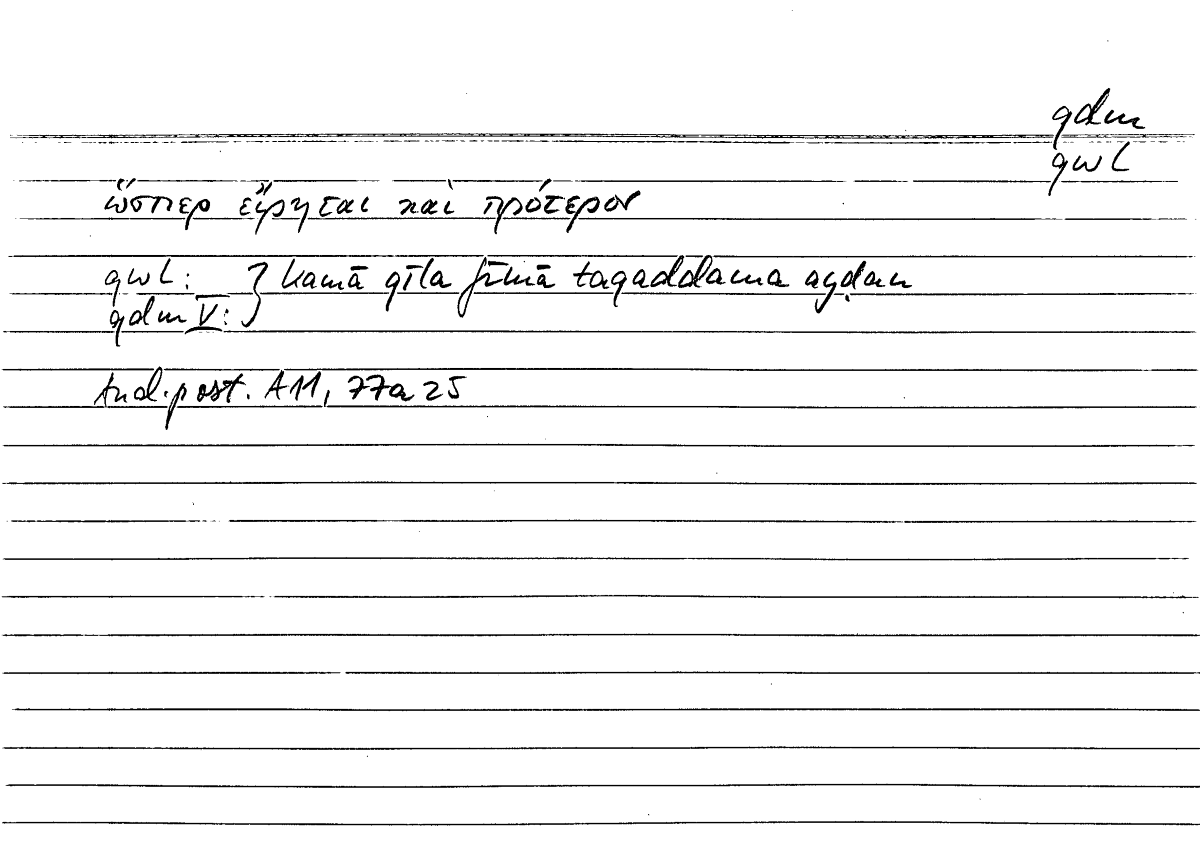 qdm
qwl
ὥσπερ εἴρηται καὶ πρότερον
qwl: } kamā qīla fīmā taqaddama ayḍan
qdm V:
And.post. A11, 77a25